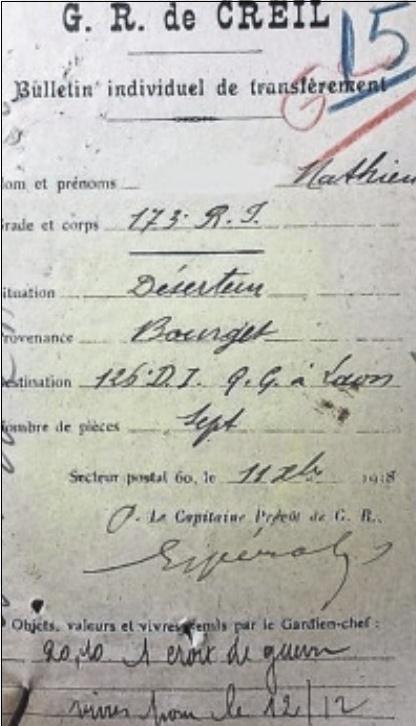 G. R. de CREIL
15
Bulletin individuel de transfèrement
Nom et prénoms Mathieu
Grade et corps 173e R. I.
Situation Déserteur
Provenance Bourget
Destination 126e D.I. Q.G. à Laon
Nombre de pièces Sept
Secteur postal 60, le 11 Xbre 1918
P. Le Capitaine Prévôt de G. R.,
Objets, valeurs et vivres remis par le Gardien-chef :
20,10 1 croix de guerre
vivres pour le 12/12